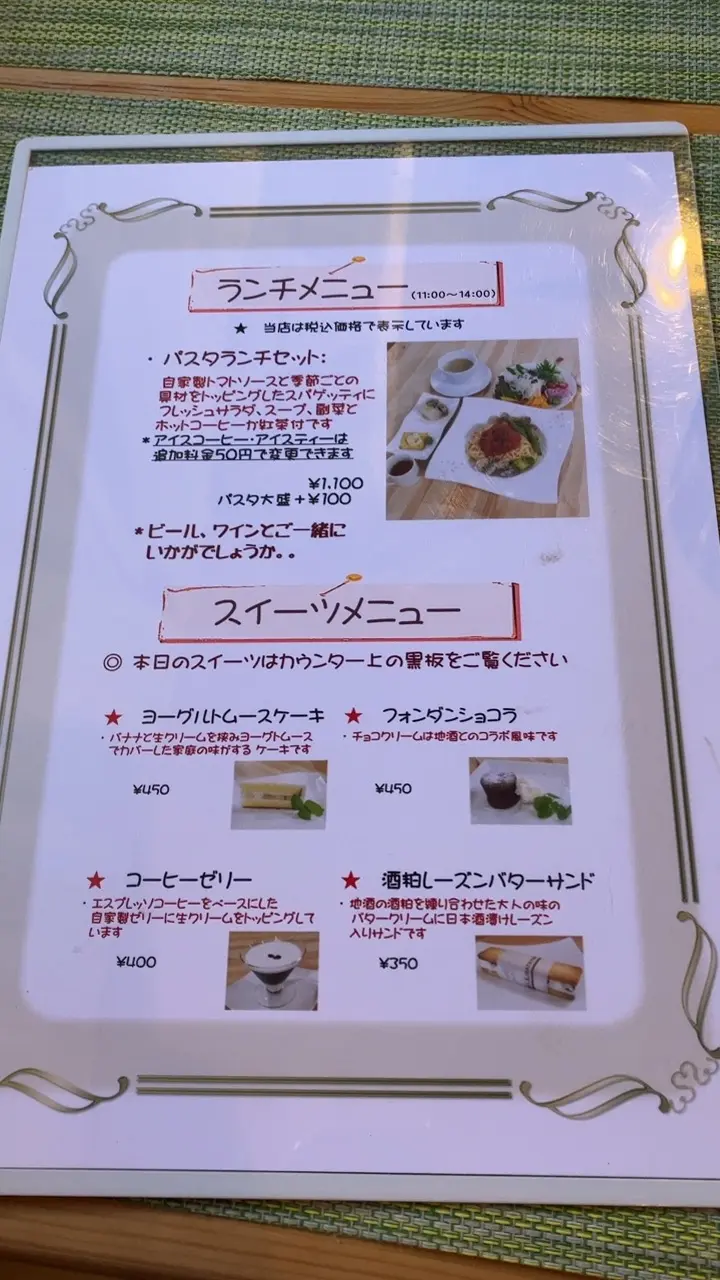 ランチメニュー(11:00〜14:00)
★ 当店は税込価格で表示しています
・パスタランチセット:
自家製トマトソースと季節ごとの
具材をトッピングしたスパゲッティに
フレッシュサラダ、スープ、副菜と
ホットコーヒーか紅茶付です
*アイスコーヒー・アイスティーは
追加料金50円で変更できます
¥1,100
パスタ大盛+¥100
*ビール、ワインとご一緒に
いかがでしょうか。。
スイーツメニュー
◎ 本日のスイーツはカウンター上の黒板をご覧ください
★ ヨーグルトムースケーキ
・バナナと生クリームを挟みヨーグトムース
でカバーした家庭の味がする ケーキです
¥450
★ フォンダンショコラ
・チョコクリームは地酒とのコラボ風味です
¥450
★ コーヒーゼリー
・エスプレッソコーヒーをベースにした
自家製ゼリーに生クリームをトッピングして
います
¥400
★ 酒粕レーズンバターサンド
・地酒の酒粕を練り合わせた大人の味の
バタークリームに日本酒漬けレーズン
入りサンドです
¥350